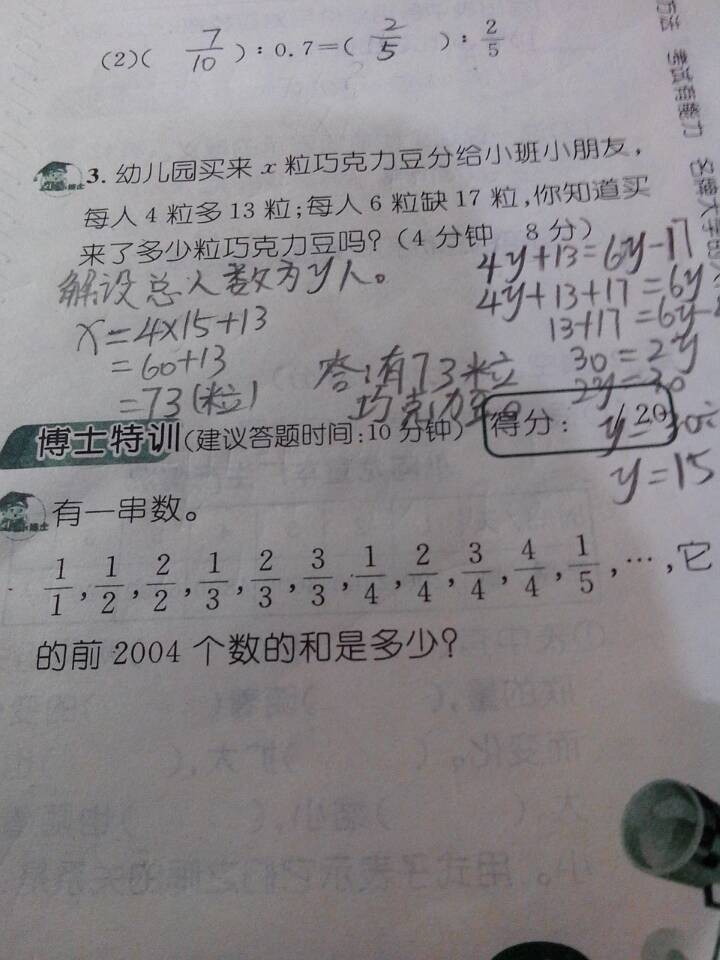 (2)( 7/10 ) : 0.7 = ( 2/5 ) : 2/5
3. 幼儿园买来 x 粒巧克力豆分给小班小朋友,
每人 4 粒多 13 粒;每人 6 粒缺 17 粒,你知道买
来了多少粒巧克力豆吗?(4 分钟 8 分)
解设总人数为y人。
x=4×15+13
=60+13
=73(粒)
答:有73粒
巧克力豆。
4y+13=6y-17
4y+13+17=6y
13+17=6y-
30=2y
2y=30
y=30÷
y=15
博士特训(建议答题时间:10 分钟) 得分: /20
有一串数。
1/1, 1/2, 2/2, 1/3, 2/3, 3/3, 1/4, 2/4, 3/4, 4/4, 1/5, …,它
的前 2004 个数的和是多少?
考试新能力